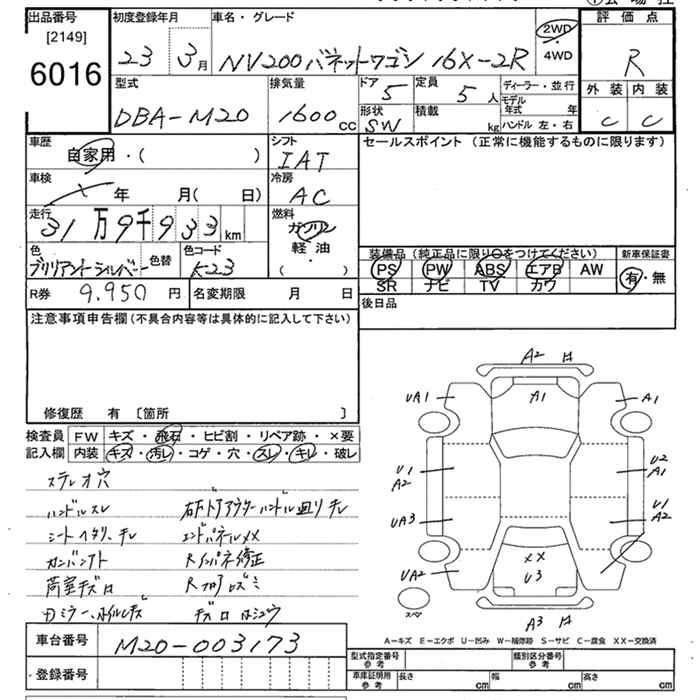 出品番号
[2149]
6016
初度登録年月
23 3月
車名・グレード
NV200バネットワゴン 16X-2R
2WD
・
4WD
評価点
R
外装 内装
C C
型式
DBA-M20
排気量
1600cc
ドア
5
定員
5人
形状
SW
積載
kg
ディーラー・並行
モデル年式 年
ハンドル 左・右
車歴
自家用・( )
シフト
IAT
セールスポイント (正常に機能するものに限ります)
車検
年 月( 日)
冷房
AC
走行
31万9千933km
燃料
ガソリン
軽・油
( )
色
ブリリアントシルバー
色替
色コード
K23
装備品 (純正品に限り○をつけてください)
PS PW ABS エアB AW
SR ナビ TV カワ
新車保証書
有・無
R券 9,950円
名変期限 月 日
後日品
注意事項申告欄 (不具合内容等は具体的に記入して下さい)
修復歴 有 [箇所 ]
検査員記入欄
FW キズ・飛石・ヒビ割・リペア跡・×要
内装 キズ・汚レ・コゲ・穴・スレ・キレ・破レ
ステレオ穴
ハンドルスレ
シートヘタリ、キレ
エンドパネルXX
Rインパネ修正
荷室キズロ
A2
UA1 A1 A1
U1
A2
U2
A1
UA3
U1
A2
UA2
XX
U3
A3
スペア
A-キズ E-エクボ U-凹み W-補修跡 S-サビ C-腐食 XX-交換済
車台番号 M20-003173
登録番号
型式指定番号
参考
類別区分番号
参考
車庫証明用
参考
長さ cm 幅 cm 高さ cm